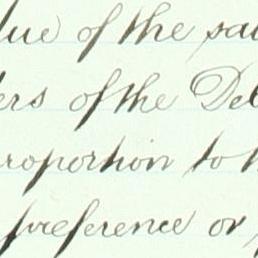 lue of the sai
ers of the Deb
roportion to th
preference or